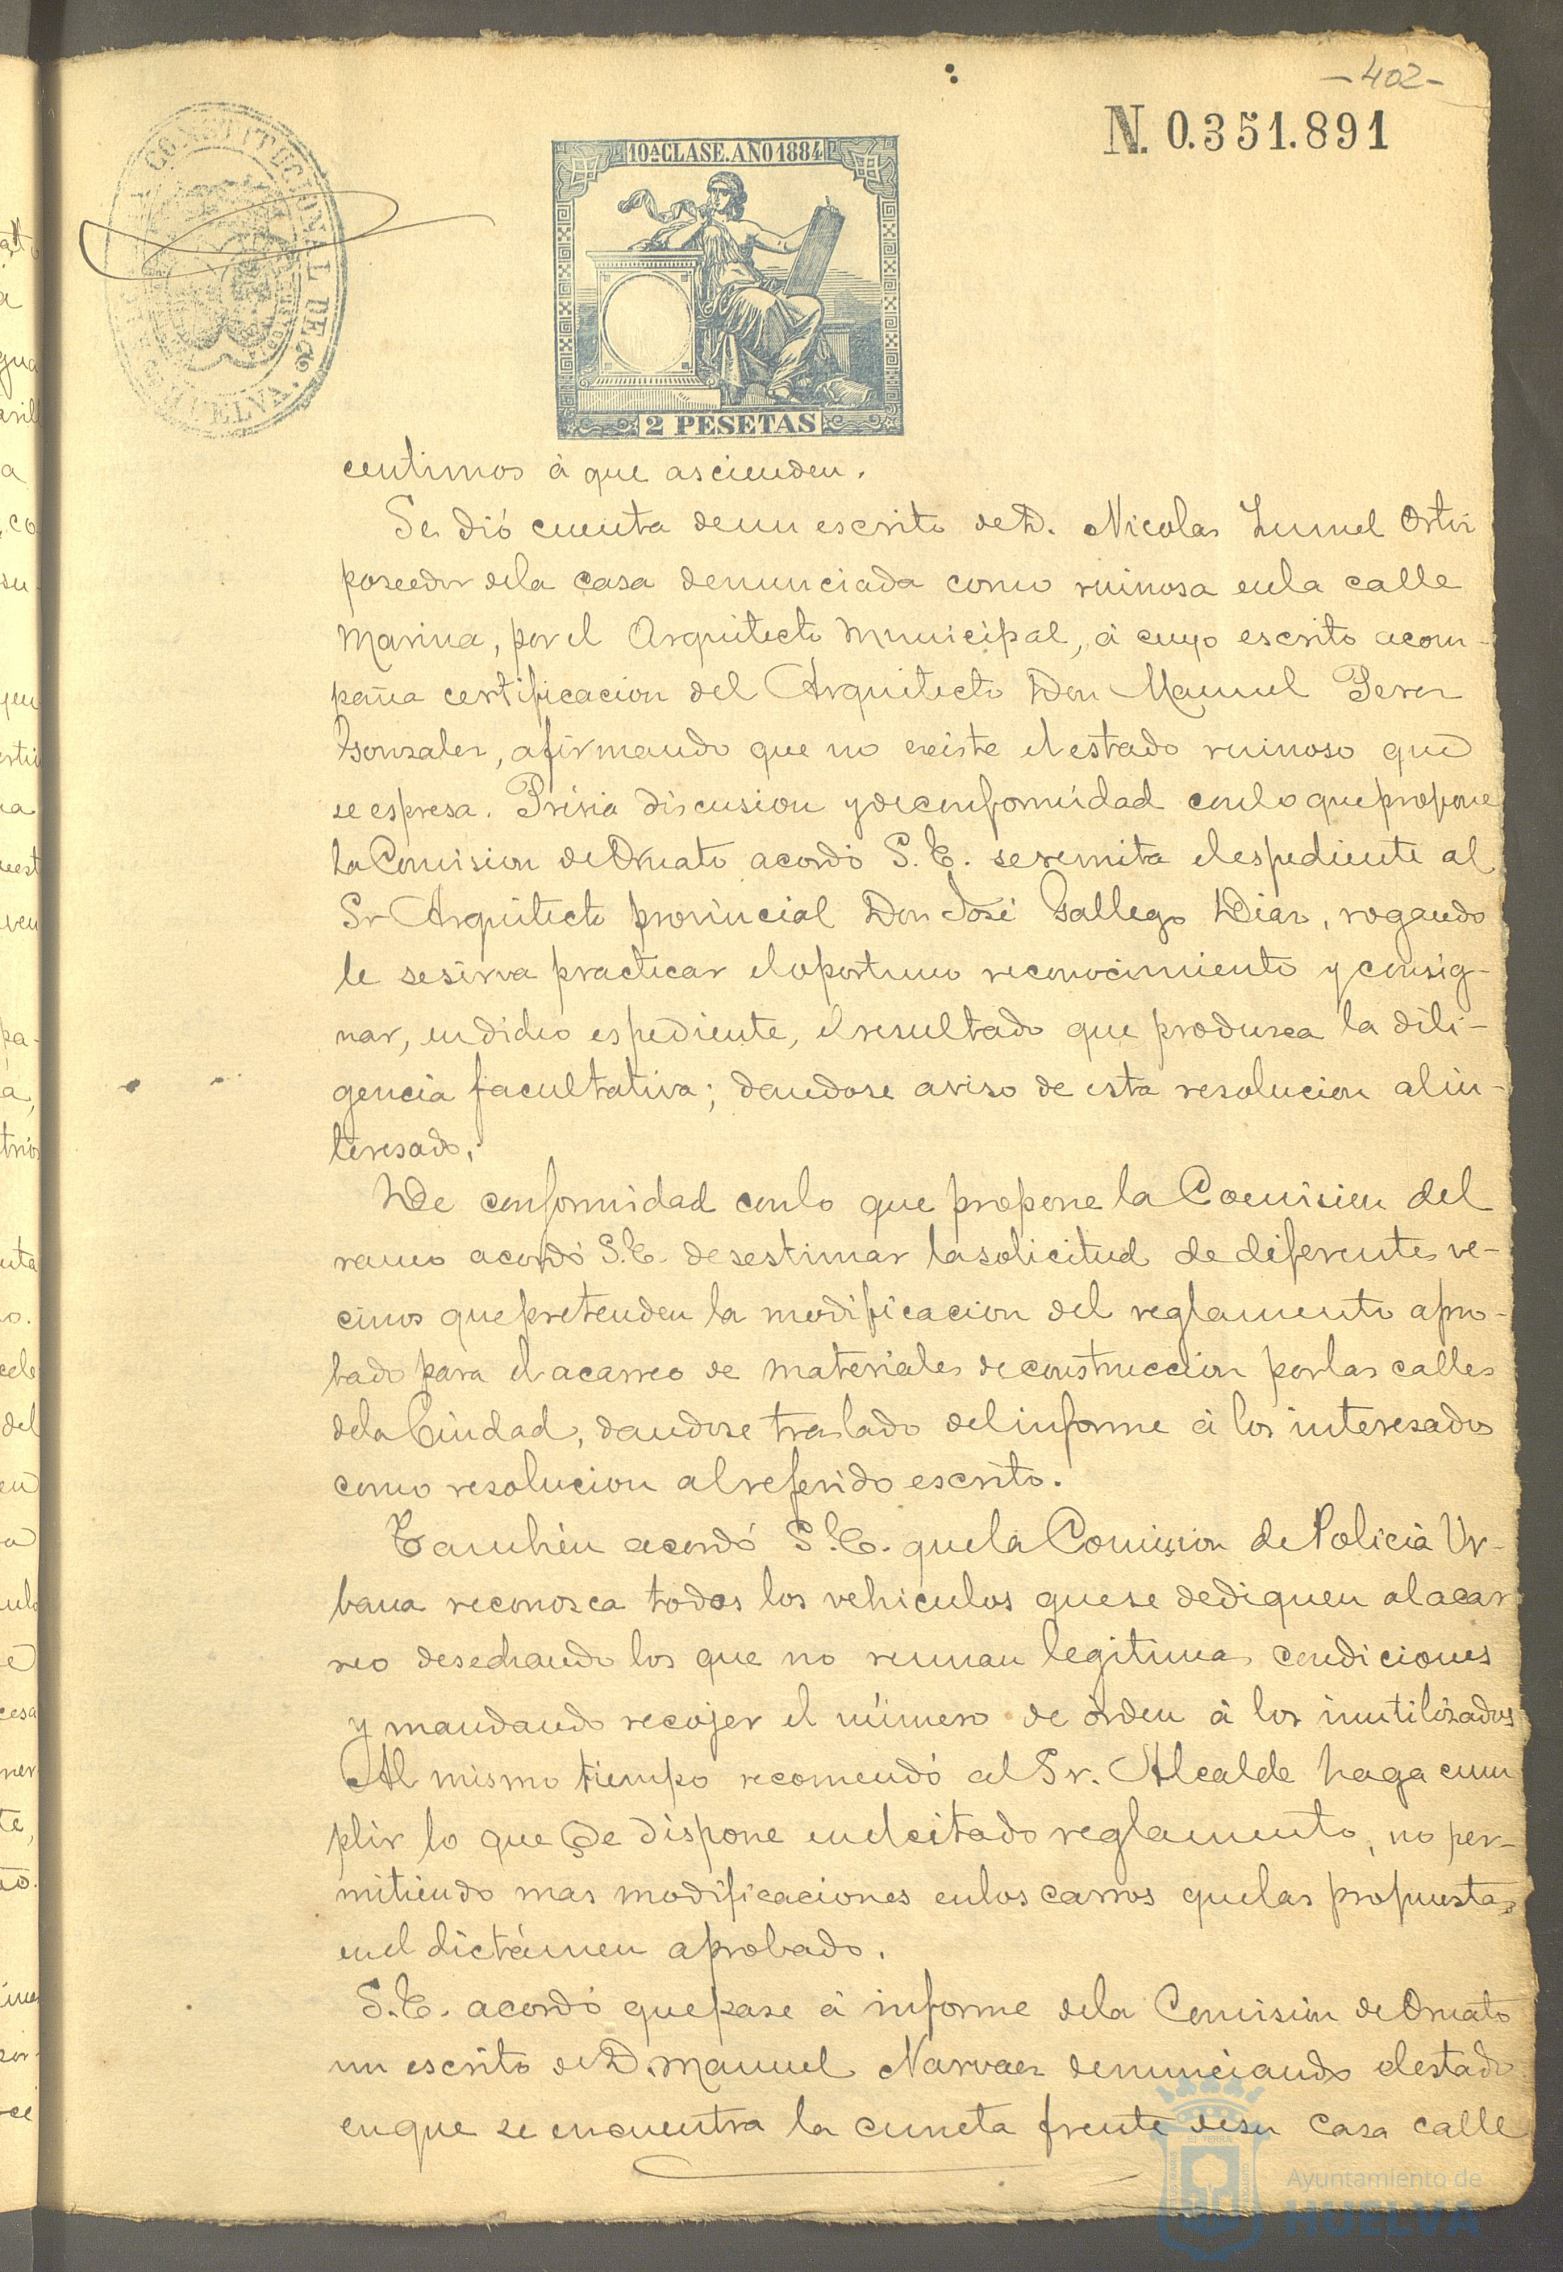 -402-
N. 0.351.891
CONSTITUCIONAL DE HUELVA
10ª CLASE. AÑO 1884
2 PESETAS
centimos á que ascienden.
Se dió cuenta de un escrito de D. Nicolas Ortiz
poseedor de la casa denunciada como ruinosa en la calle
Marina, por el Arquitecto Municipal, á cuyo escrito acom-
paña certificacion del Arquitecto Don Manuel Perez
Gonzalez, afirmando que no existe el estado ruinoso que
se espresa. Prévia discusion y de conformidad con lo que propone
la Comision de Ornato acordó S.E. se remita el espediente al
Sr Arquitecto provincial Don José Gallego Diaz, rogando
le se sirva practicar el oportuno reconocimiento y consig-
nar, en dicho espediente, el resultado que produzca la dili-
gencia facultativa; dandose aviso de esta resolucion al in-
teresado.
De conformidad con lo que propone la Comision del
ramo acordó S.E. desestimar la solicitud de diferentes ve-
cinos que pretenden la modificacion del reglamento apro-
bado para el acarreo de materiales de construccion por las calles
de la Ciudad, dandose traslado del informe á los interesados
como resolucion al referido escrito.
Tambien acordó S.E. que la Comision de Policia Ur-
bana reconozca todos los vehiculos que se dediquen al acar
reo desechando los que no reunan legitimas condiciones
y mandando recojer el número de órden á los inutilizados
Al mismo tiempo recomendó al Sr. Alcalde haga cum
plir lo que se dispone en el citado reglamento, no per-
mitiendo mas modificaciones en los carros que las propuestas
en el dictámen aprobado.
S.E. acordó que pase á informe de la Comision de Ornato
un escrito de D. Manuel Narvaez denunciando el estado
en que se encuentra la cuneta frente de su casa calle
Ayuntamiento de
HUELVA